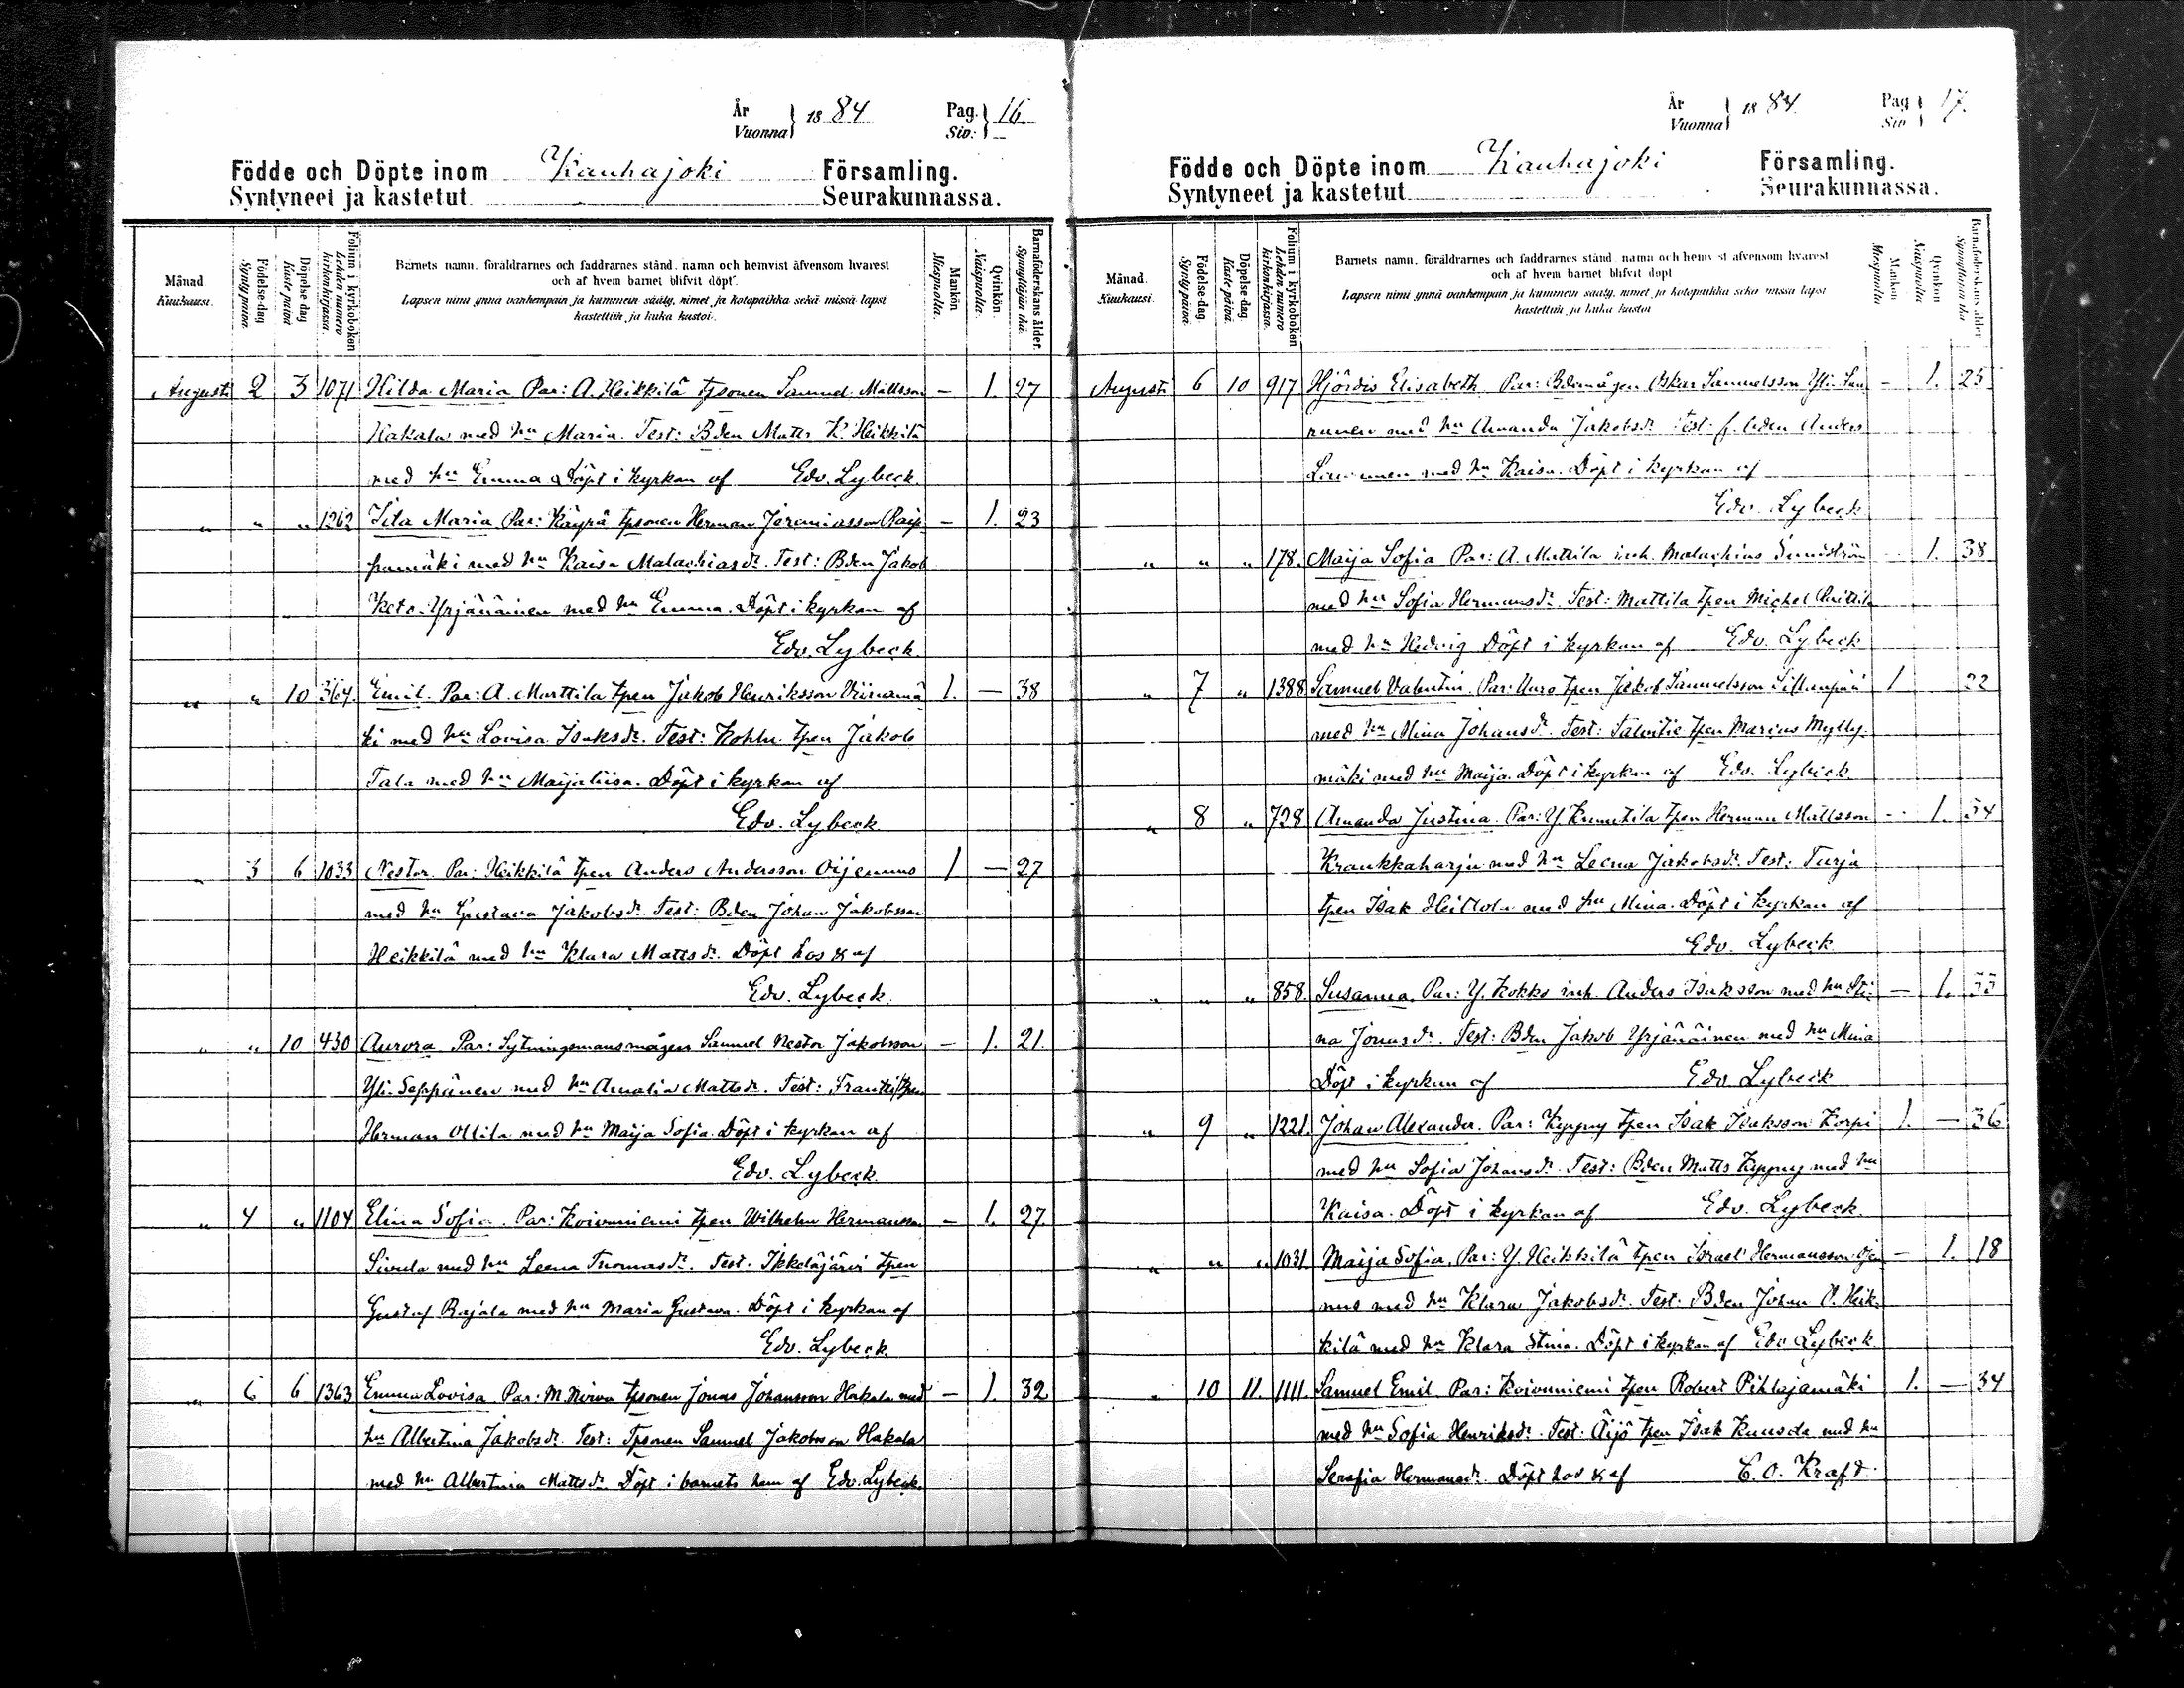 År
Vuonna } 1884 Pag.
Siv: } 16.
Födde och Döpte inom Kauhajoki Församling.
Syntyneet ja kastetut Seurakunnassa.
Månad.
Kuukausi.
Födelse-dag
Syntypäivä.
Döpelse dag
Kaste päivä
Folium i kyrkoboken
Lehden numero
kirkonkirjassa.
Barnets namn, föräldrarnes och faddrarnes stånd, namn och hemvist äfvensom hvarest
och af hvem barnet blifvit döpt.
Lapsen nimi ynnä vanhempain ja kummein sääty, nimet ja kotopaikka sekä missä lapsi
kastettiin ja kuka kastoi.
Mankön
Miespuolta.
Qvinkön.
Naispuolta.
Barnaföderskans ålder.
Synnyttäjän ikä.
Augusti 2 3 1071 Hilda Maria Par: A. Heikkilä tpsonen Samuel Mattsson — 1. 27
Hakala med hu Maria. Test: Bden Matts K. Heikkilä
med hu Emma Döpt i kyrkan af Edv. Lybeck.
" " " 1262 Iita Maria Par: Käyrä tpsonen Herman Jeremiasson — 1. 23
med hu Kaisa Malachiasdr. Test: Bden Jakob
Keto-Yrjänäinen med hu Emma. Döpt i kyrkan af
Edv. Lybeck.
" " 10 364. Emil. Par: A. Marttila tpen Jakob Henriksson Viinamä 1. — 38
ki med hu Lovisa Isaksdr. Test: tpen Jakob
Tala med hu Maijaliisa. Döpt i kyrkan af
Edv. Lybeck
" 3 6 1033 Nestor. Par: Heikkilä tpen Anders Andersson Oijennus 1 — 27
med hu Gustava Jakobsdr. Test: Bden Johan Jakobsson
Heikkilä med hu Klara Mattsdr. Döpt hos af
Edv. Lybeck.
" " 10 430 Aurora. Par: Sytningsmansmågen Samuel Nestor Jakobsson — 1. 21.
Yli-Seppänen med hu Amalia Mattsdr. Test: Frantti tpen
Herman Ollila med hu Maija Sofia. Döpt i kyrkan af
Edv. Lybeck.
" 4 " 1104 Elina Sofia. Par: Koivuniemi tpen Wilhelm Hermansson — 1. 27
Sivula med hu Leena Thomasdr. Test. Ikkeläjärvi tpen
Gustaf Rajala med hu Maria Gustava. Döpt i kyrkan af
Edv. Lybeck.
" 6 6 1363 Emma Lovisa Par: M. Nirva tpsonen Jonas Johansson Hakala med — 1. 32
hu Albertina Jakobsdr. Test: Tpsonen Samuel Jakobsson Hakala
med hu Albertina Mattsdr. Döpt i barnets hem af Edv. Lybeck.
År
Vuonna } 1884. Pag
Siv } 17.
Födde och Döpte inom Kauhajoki Församling.
Syntyneet ja kastetut Seurakunnassa.
Månad.
Kuukausi.
Födelse-dag.
Synty päivä.
Döpelse-dag.
Kaste päivä.
Folium i kyrkoboken
Lehden numero
kirkonkirjassa.
Barnets namn, föräldrarnes och faddrarnes stånd namn och hemvist äfvensom hvarest
och af hvem barnet blifvit döpt
Lapsen nimi ynnä vanhempain ja kummein sääty, nimet ja kotopaikka sekä missä lapsi
kastettiin ja kuka kastoi
Mankön
Miespuolta
Qvinkön
Naispuolta
Barnaföderskans ålder
Synnyttäjän ikä
Augusti 6 10 917 Hjördis Elisabeth. Par: Bdemågen Oskar Samuelsson Yli-Lau — 1. 25
runen med hu Amanda Jakobsdr Test: f. bden Anders
med hu Kaisa. Döpt i kyrkan af
Edv. Lybeck
" " " 178. Maija Sofia Par: A. Mattila inh. Malachias Sundström — 1. 38
med hu Sofia Hermansdr. Test: Mattila tpen Michel
med hu Hedvig Döpt i kyrkan af Edv. Lybeck
" 7 " 1388 Samuel Valentin. Par: Auro tpen Jakob Samuelsson Sillanpää 1 22
med hu Mina Johansdr. Test: Salvitie tpen Marius Mylly-
mäki med hu Maija. Döpt i kyrkan af Edv. Lybeck
" 8 " 728 Amanda Justina. Par: Y. tpen Herman Mattsson — 1. 34
Kraukkaharju med hu Leena Jakobsdr. Test: Turja
tpen Isak Heittola med hu Mina. Döpt i kyrkan af
Edv. Lybeck
" " " 858. Susanna. Par: Y. Kokko inh. Anders Isaksson med hu Sti- — 1. 33
na Jonasdr. Test: Bden Jakob Yrjänäinen med hu Mina
Döpt i kyrkan af Edv. Lybeck
" 9 " 1221. Johan Alexander. Par: Kyyny tpen Isak Isaksson Korpi 1. — 36
med hu Sofia Johansdr. Test: Bden Matts Kyyny med hu
Kaisa. Döpt i kyrkan af Edv. Lybeck.
" " " 1031 Maija Sofia. Par: Y. Heikkilä tpen Israel Hermansson Ojen — 1. 18
nus med hu Klara Jakobsdr. Test: Bden Johan O. Heik-
kilä med hu Klara Stina. Döpt i kyrkan af Edv. Lybeck
" 10 11. 1111. Samuel Emil. Par: Koivuniemi tpen Robert Pihlajamäki 1. — 34
med hu Sofia Henriksdr. Test. Äijö tpen Isak Kuusela med hu
Serafia Hermansdr. Döpt hos af C. O. Kraft